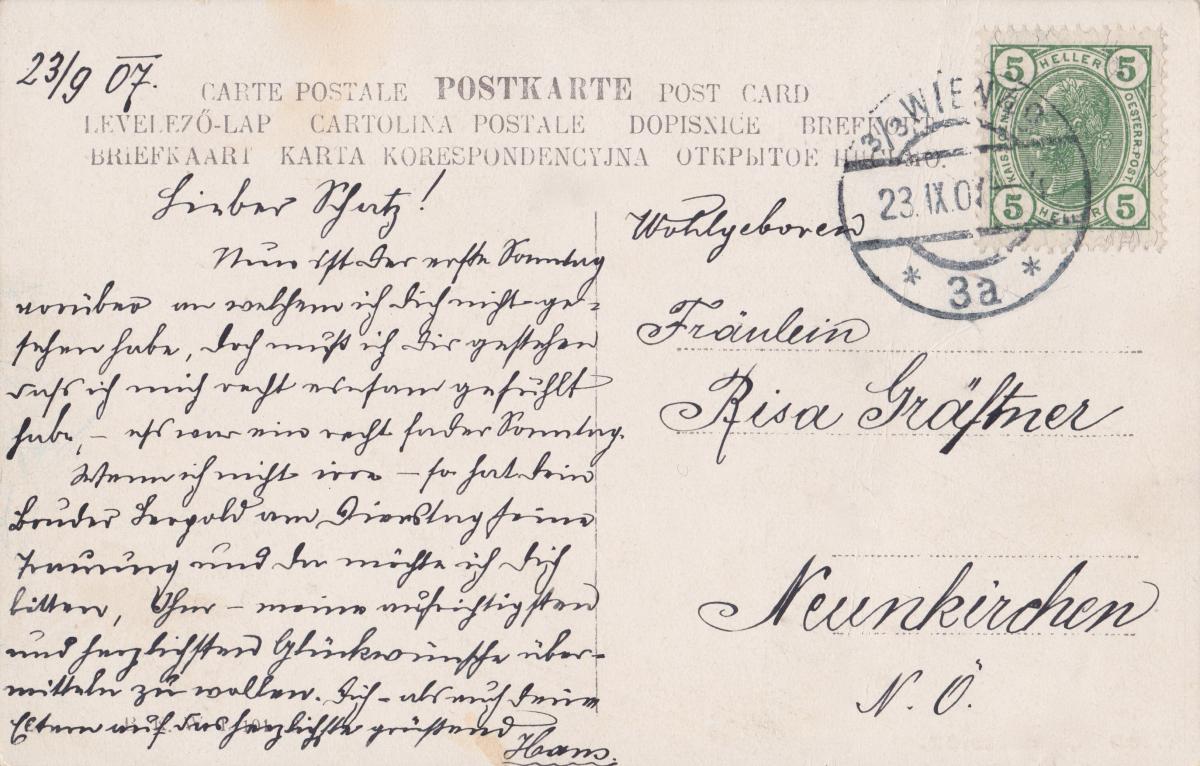 23/9 07.
CARTE POSTALE POSTKARTE POST CARD
LEVELEZŐ-LAP CARTOLINA POSTALE DOPISNICE
BRIEFKAART KARTA KORESPONDENCYJNA ОТКРЫТОЕ
Lieber Schatz!
Nun ist der erste Sonntag
vorüber an welchem ich dich nicht ge-
sehen habe, doch muß ich Dir gestehen
dass ich mich recht einsam gefühlt
habe, – es war ein recht fader Sonntag.
Wenn ich nicht irre – so hat dein
Bruder Leopold am Dienstag seine
Trauung und da möchte ich Dich
bitten, Ihm – meine aufrichtigsten
und herzlichsten Glückwünsche über-
mitteln zu wollen. Dich – als auch deine
Eltern auf das herzlichste grüßend
Hans.
Wohlgeboren
Fräulein
Risa Gräftner
Neunkirchen
N. Ö.
WIEN
23.IX.07
* 3a *
5 HELLER 5
OESTER.POST
5 HELLER 5